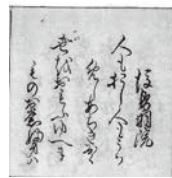 後鳥羽院
人もおし人もうら
めしあちきなく
世をおもふゆへに
もの思ふ身は